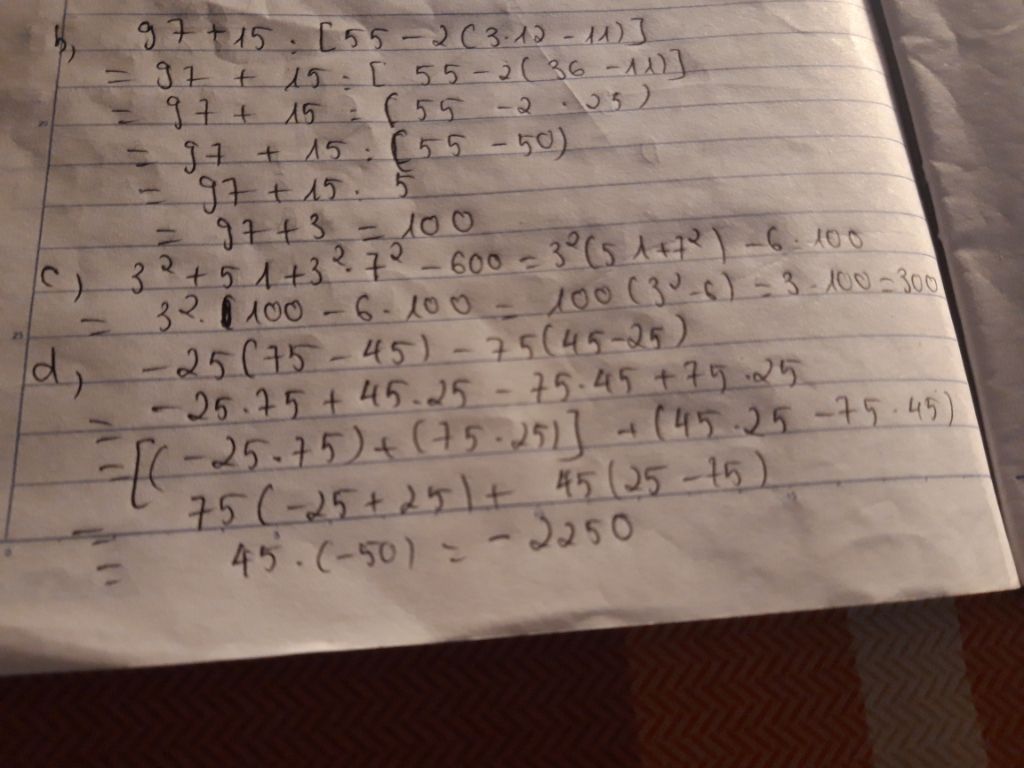 b, 97 + 15 : [55 - 2(3.12 - 11)]
= 97 + 15 : [ 55 - 2(36 - 11)]
= 97 + 15 : (55 - 2 . 25)
= 97 + 15 : (55 - 50)
= 97 + 15 : 5
= 97 + 3 = 100
c, 3² + 51 + 3² . 7² - 600 = 3² (51 + 7²) - 6 . 100
= 3² . 100 - 6 . 100 = 100 (3² - 6) = 3 . 100 = 300
d, - 25 (75 - 45) - 75 (45 - 25)
= - 25 . 75 + 45 . 25 - 75 . 45 + 75 . 25
= [(- 25 . 75) + (75 . 25)] + (45 . 25 - 75 . 45)
= 75 (- 25 + 25) + 45 (25 - 75)
= 45 . (- 50) = - 2250